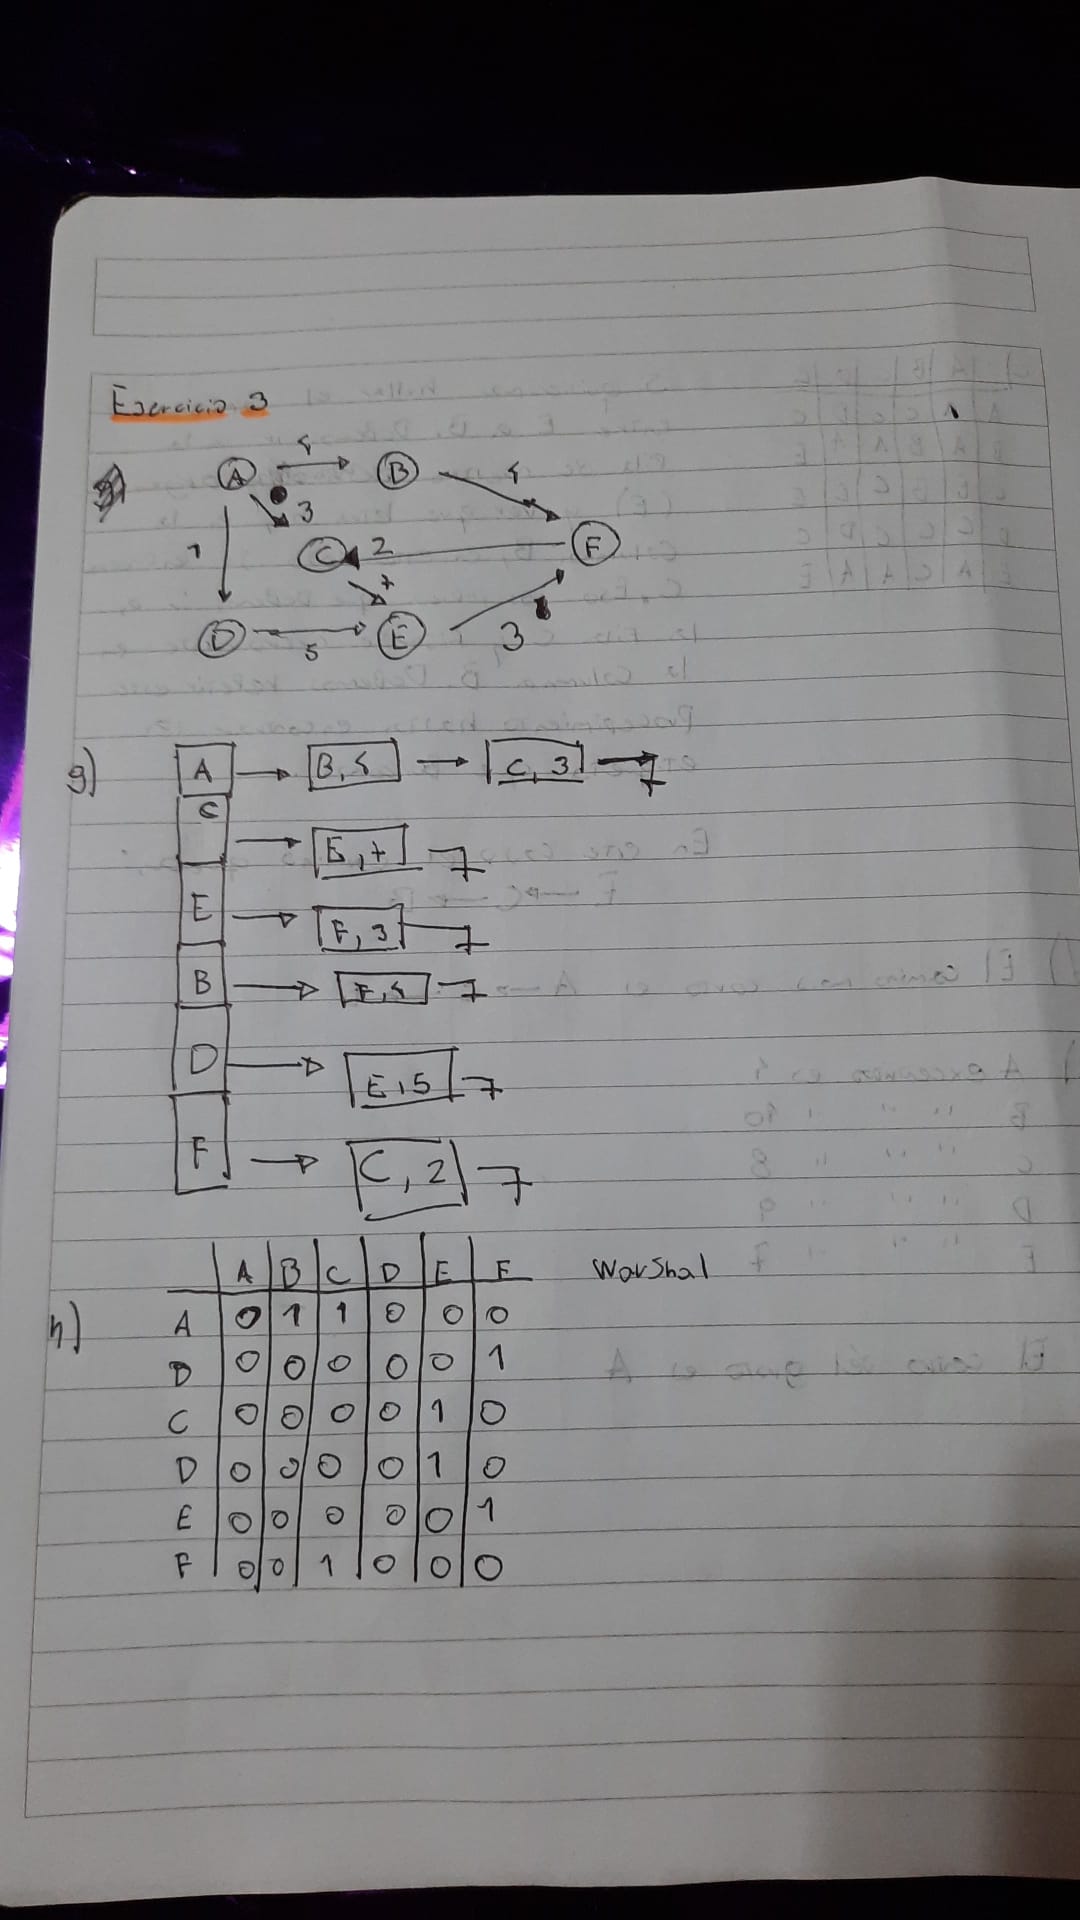 Ejercicio 3
A 4 B 4
3
1 C 2 F
7
D 5 E 3
g) A → B,4 → C,3
C → E,7
E → F,3
B → F,4
D → E,5
F → C,2
A B C D E F Warshal
h) A 0 1 1 0 0 0
D 0 0 0 0 0 1
C 0 0 0 0 1 0
D 0 0 0 0 1 0
E 0 0 0 0 0 1
F 0 0 1 0 0 0